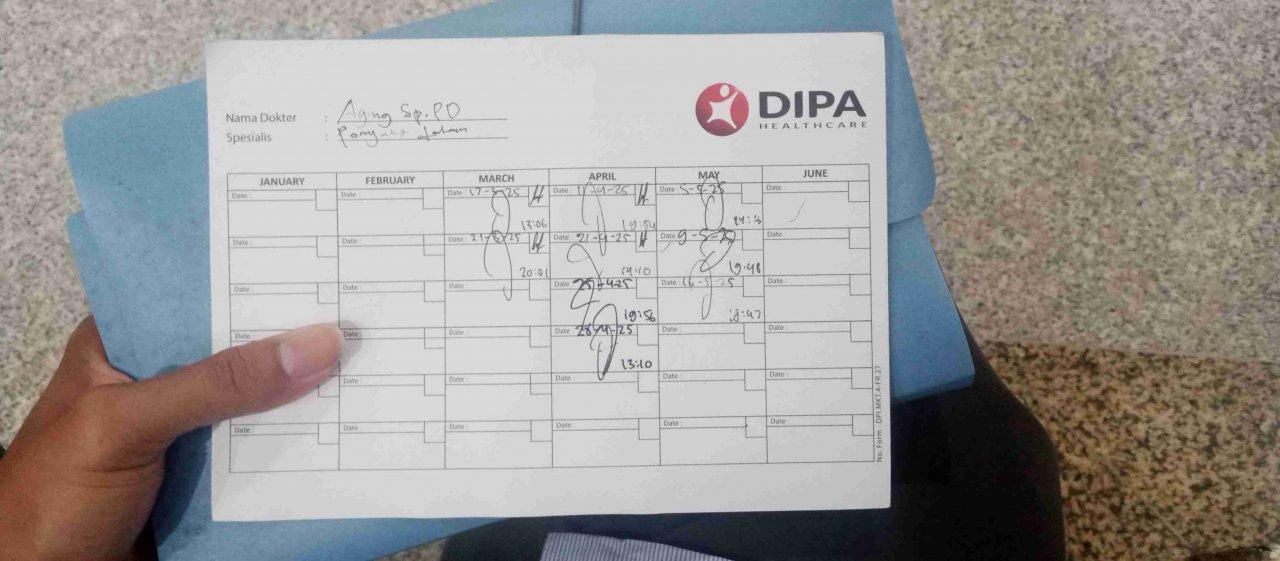 DIPA
HEALTHCARE
Nama Dokter : Agung Sp.PD
Spesialis : Penyakit dalam
JANUARY FEBRUARY MARCH APRIL MAY JUNE
Date : Date : Date : 17-3-25 Date : 11-4-25 Date : 5-5-25 Date :
13:06 19:54
Date : Date : Date : 21-3-25 Date : 21-4-25 Date : 9-5-25 Date :
20:01 14:10 19:48
Date : Date : Date : 25-4-25 16-5-25 Date :
19:56 18:47
Date : Date : Date : 28-4-25 Date : Date :
13:10
Date : Date : Date : Date : Date : Date :
Date : Date : Date : Date : Date : Date :
No. Form DPI.MKT.4-FR.27